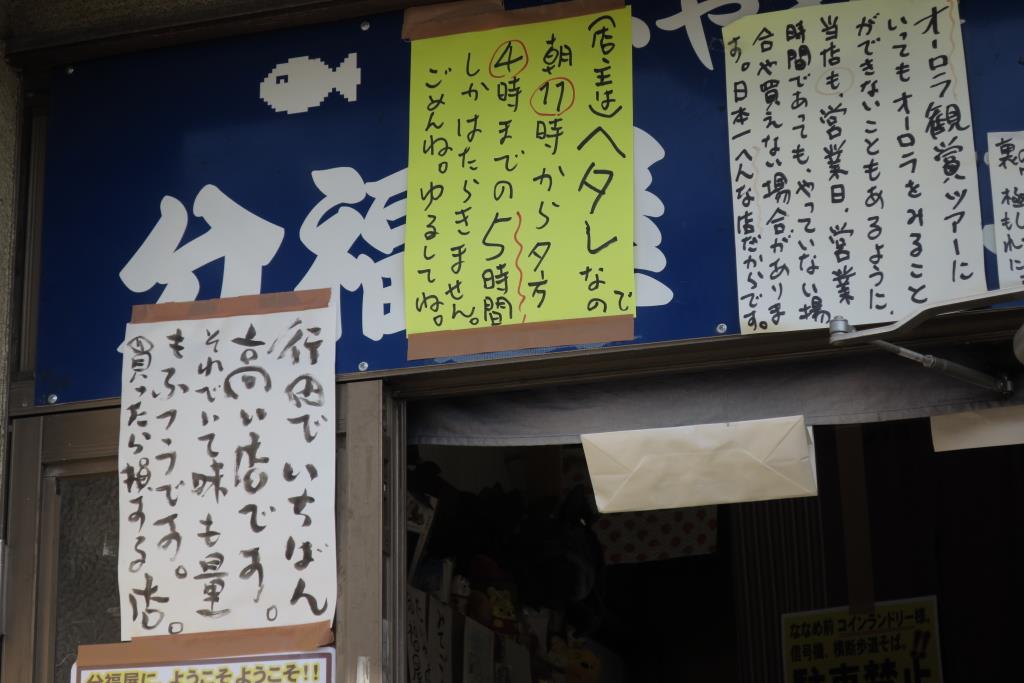 オーロラ観賞ツアーに
いってもオーロラをみること
ができないこともあるように、
当店も、営業日、営業
時間であっても、やっていない場
合や買えない場合がありま
す。日本一へんな店だからです。
(店主は)ヘタレなので
朝11時から夕方
4時までの5時間
しかはたらきません。
ごめんね。ゆるしてね。
分福屋
行田でいちばん
高い店です。
それでいて味も量
もふつうです。
買ったら損する店。
分福屋に、ようこそようこそ!!
ななめ前 コインランドリー様。
信号機、横断歩道そば。!!
駐車禁止